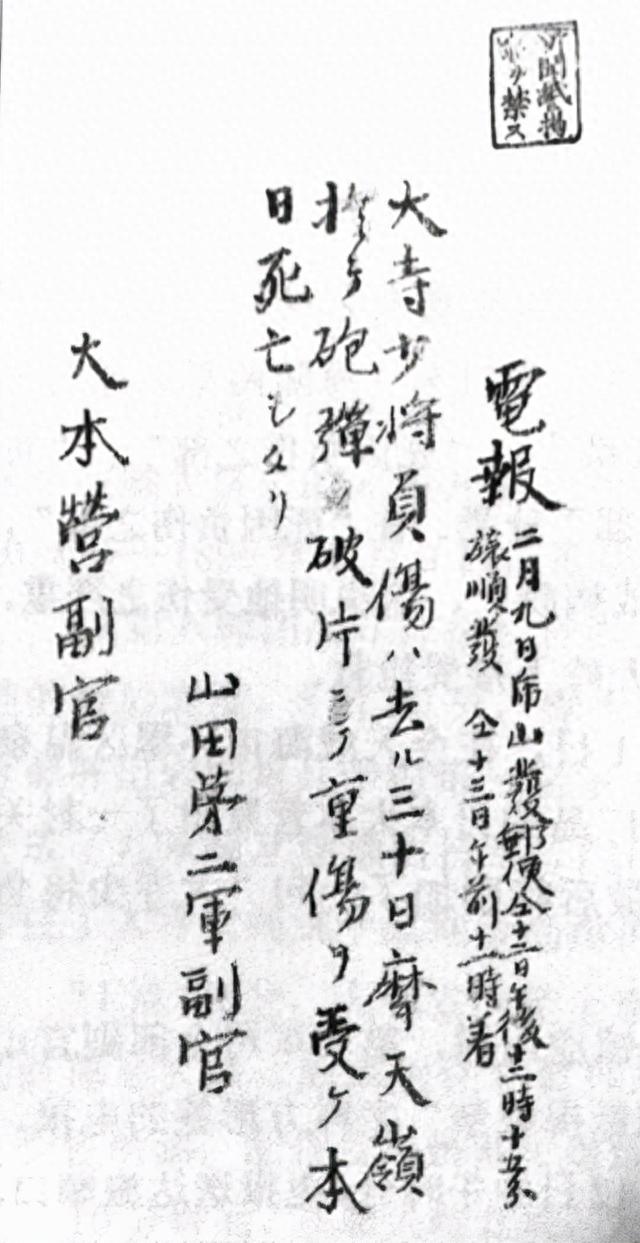 新聞紙掲
載ヲ禁ス
電報
二月九日 山發郵便仝十二日午後十二時十五分
旅順發 仝十三日午前十一時着
大寺少将負傷ハ去ル三十日摩天嶺
於テ砲彈ノ破片ニテ重傷ヲ受ケ本
日死亡セラレタリ
山田第二軍副官
大本營副官